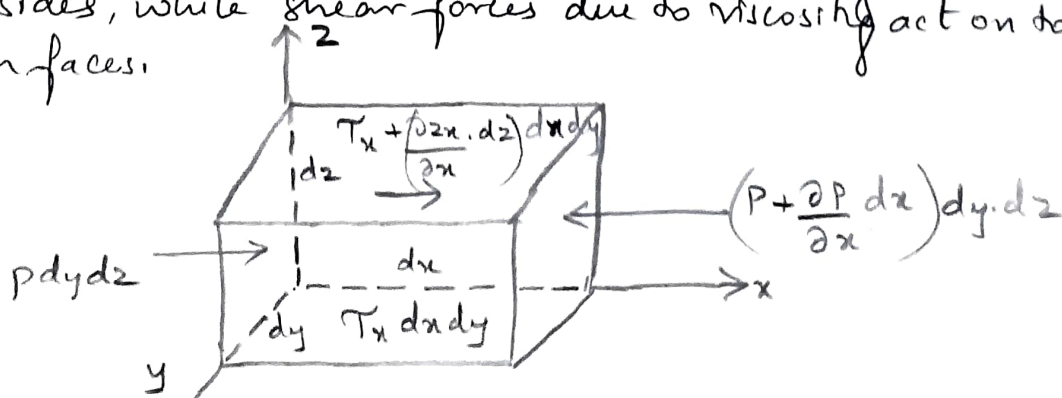 sides, while shear forces due to viscosity act on to
n faces.
z
Tx + (∂zx . dz / ∂x) dxdy
dz
(P + ∂P/∂x dx) dy.dz
Pdydz
dx
x
dy
Tx dxdy
y